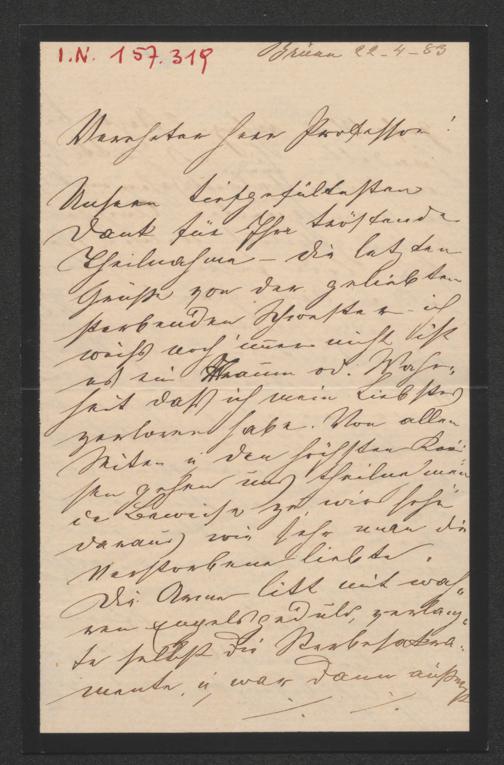 I.N. 157.319
Brünn 22-4-83
Verehrter Herr Professor!
Unsern tiefgefühltesten
Dank für Ihre tröstende
Theilnahme – die letzten
Grüße von der geliebten
sterbenden Schwester – ich
weiß noch immer nicht ist
es ein Traum od. Wahr-
heit daß ich mein Liebstes
verloren habe. Von allen
Seiten u den höchsten Krei-
sen gehen uns theilnemen
de Beweise zu, wir sehe
daraus wie sehr man die
Verstorbene liebte.
Die Arme litt mit wah-
ren Engelsgeduld, verlang-
te selbst die Sterbesakra-
mente, u war dann
./. ./.